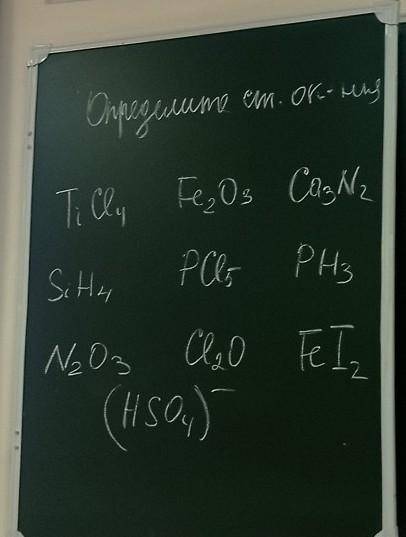 Определите ст. ок-ния
TiCl₄ Fe₂O₃ Ca₃N₂
SiH₄ PCl₅ PH₃
N₂O₃ Cl₂O FeI₂
(HSO₄)⁻